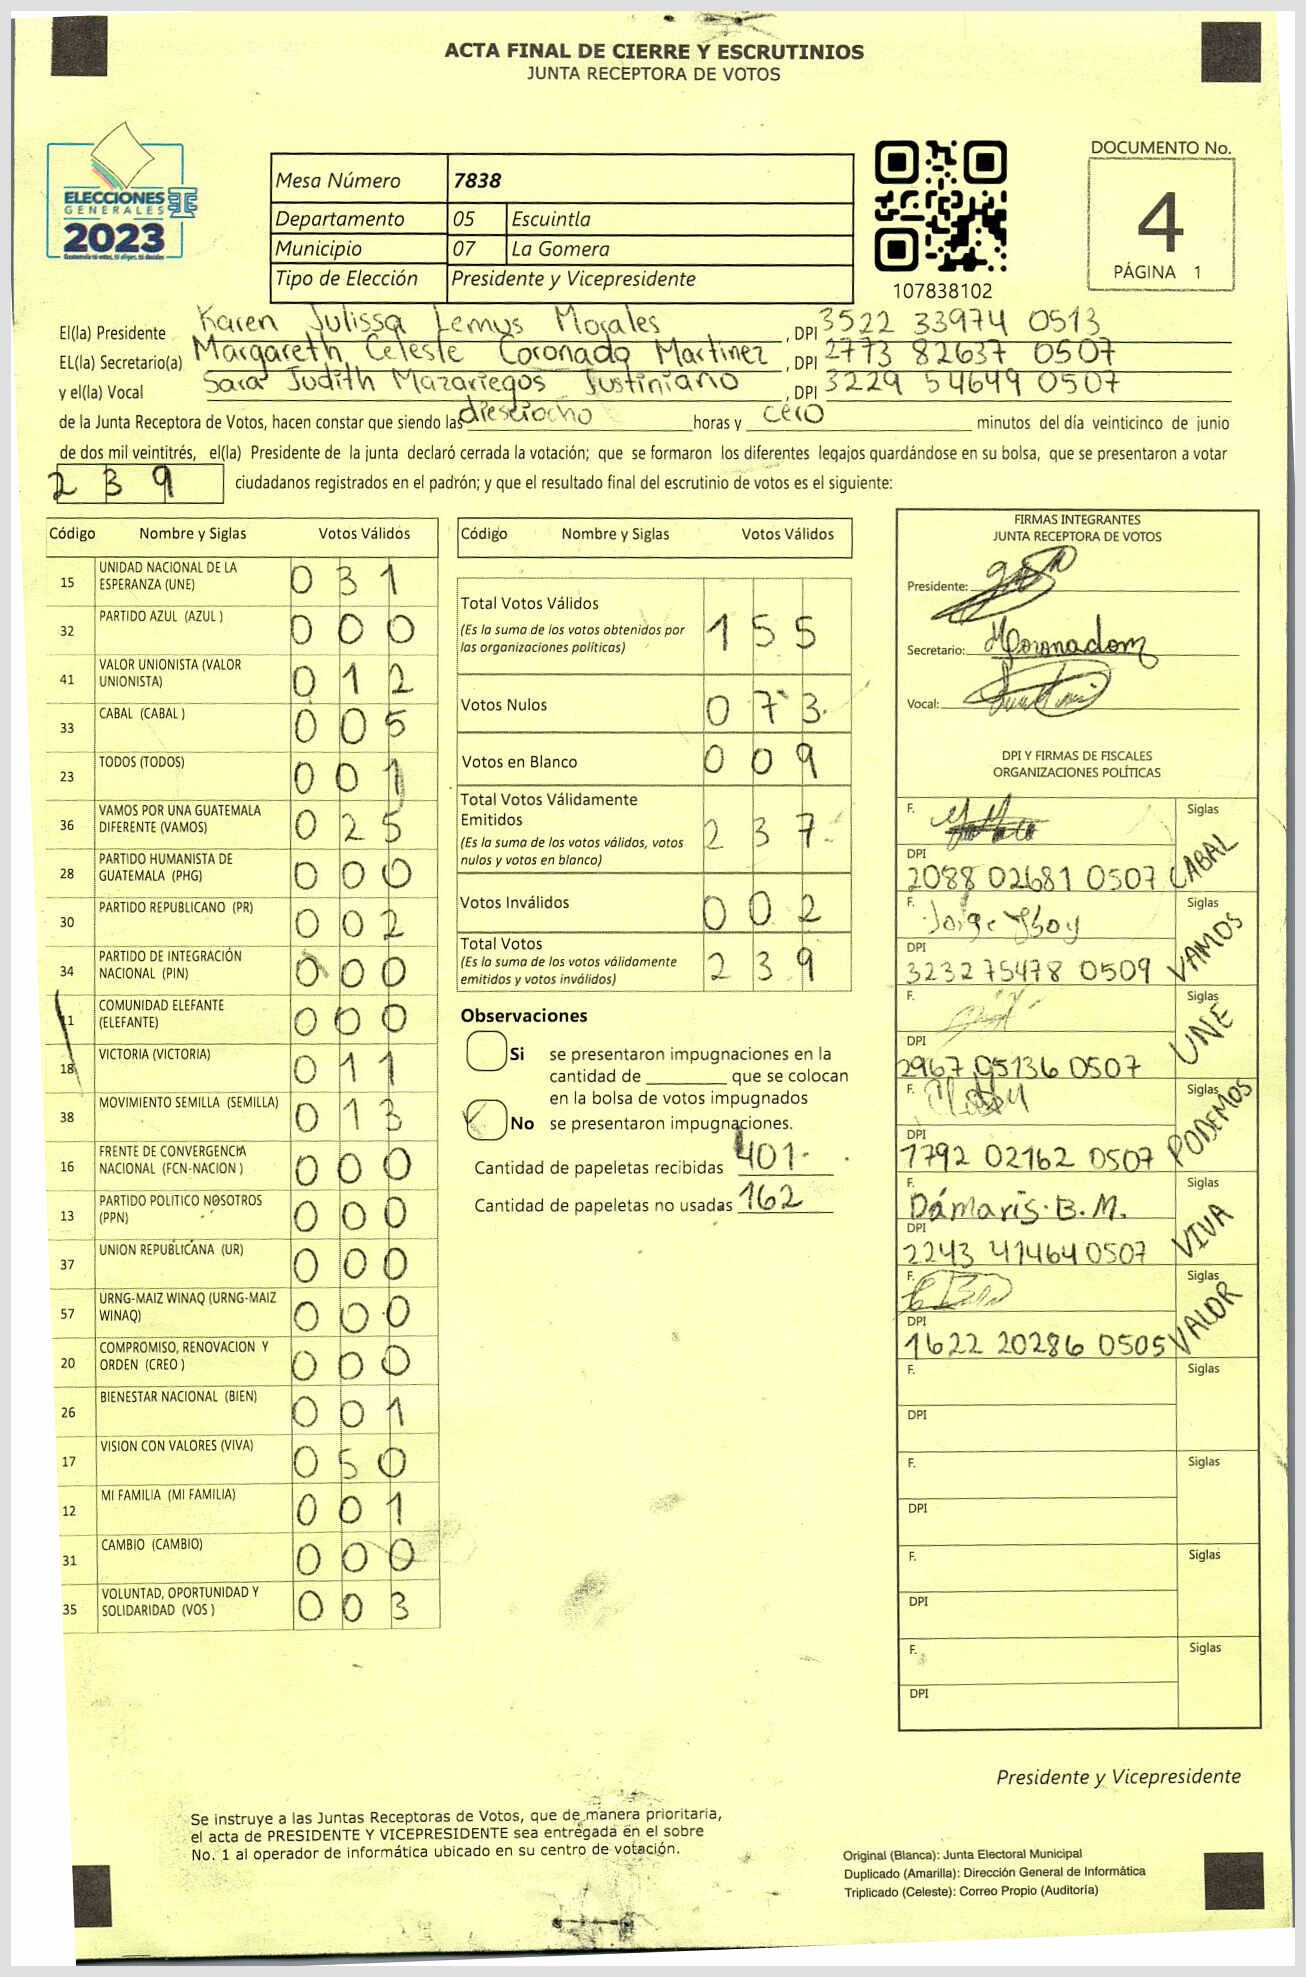 ACTA FINAL DE CIERRE Y ESCRUTINIOS
JUNTA RECEPTORA DE VOTOS
ELECCIONES
GENERALES
2023
Mesa Número 7838
Departamento 05 Escuintla
Municipio 07 La Gomera
Tipo de Elección Presidente y Vicepresidente
107838102
DOCUMENTO No.
4
PÁGINA 1
El(la) Presidente Karen Julissa Lemus Morales, DPI 3522 33974 0513
EL(la) Secretario(a) Margareth Celeste Coronado Martinez, DPI 2773 82637 0507
y el(la) Vocal Sara Judith Mazariegos Justiniano, DPI 3229 54649 0507
de la Junta Receptora de Votos, hacen constar que siendo las dieseiocho horas y cero minutos del día veinticinco de junio
de dos mil veintitrés, el(la) Presidente de la junta declaró cerrada la votación; que se formaron los diferentes legajos quardándose en su bolsa, que se presentaron a votar
239 ciudadanos registrados en el padrón; y que el resultado final del escrutinio de votos es el siguiente:
Código Nombre y Siglas Votos Válidos
15 UNIDAD NACIONAL DE LA ESPERANZA (UNE) 0 3 1
32 PARTIDO AZUL (AZUL ) 0 0 0
41 VALOR UNIONISTA (VALOR UNIONISTA) 0 1 2
33 CABAL (CABAL ) 0 0 5
23 TODOS (TODOS) 0 0 1
36 VAMOS POR UNA GUATEMALA DIFERENTE (VAMOS) 0 2 5
28 PARTIDO HUMANISTA DE GUATEMALA (PHG) 0 0 0
30 PARTIDO REPUBLICANO (PR) 0 0 2
34 PARTIDO DE INTEGRACIÓN NACIONAL (PIN) 0 0 0
11 COMUNIDAD ELEFANTE (ELEFANTE) 0 0 0
18 VICTORIA (VICTORIA) 0 1 1
38 MOVIMIENTO SEMILLA (SEMILLA) 0 1 3
16 FRENTE DE CONVERGENCIA NACIONAL (FCN-NACION ) 0 0 0
13 PARTIDO POLITICO NOSOTROS (PPN) 0 0 0
37 UNION REPUBLICANA (UR) 0 0 0
57 URNG-MAIZ WINAQ (URNG-MAIZ WINAQ) 0 0 0
20 COMPROMISO, RENOVACION Y ORDEN (CREO ) 0 0 0
26 BIENESTAR NACIONAL (BIEN) 0 0 1
17 VISION CON VALORES (VIVA) 0 5 0
12 MI FAMILIA (MI FAMILIA) 0 0 1
31 CAMBIO (CAMBIO) 0 0 0
35 VOLUNTAD, OPORTUNIDAD Y SOLIDARIDAD (VOS ) 0 0 3
Código Nombre y Siglas Votos Válidos
Total Votos Válidos 1 5 5
(Es la suma de los votos obtenidos por
las organizaciones políticas)
Votos Nulos 0 7 3
Votos en Blanco 0 0 9
Total Votos Válidamente
Emitidos 2 3 7
(Es la suma de los votos válidos, votos
nulos y votos en blanco)
Votos Inválidos 0 0 2
Total Votos 2 3 9
(Es la suma de los votos válidamente
emitidos y votos inválidos)
Observaciones
Si se presentaron impugnaciones en la
cantidad de ________ que se colocan
en la bolsa de votos impugnados
No se presentaron impugnaciones.
Cantidad de papeletas recibidas 401
Cantidad de papeletas no usadas 162
FIRMAS INTEGRANTES
JUNTA RECEPTORA DE VOTOS
Presidente:
Secretario: Mcoronadom
Vocal:
DPI Y FIRMAS DE FISCALES
ORGANIZACIONES POLÍTICAS
F. Siglas
DPI
2088 02681 0507 CABAL
F. Jorge Siglas
DPI
3232 75478 0509 VAMOS
F. Siglas
DPI
2967 95136 0507 UNE
F. Siglas
DPI
1792 02162 0507 PODEMOS
F. Dámaris. B. M. Siglas
DPI
2243 41464 0507 VIVA
F. Siglas
DPI
1622 20286 0505 VALOR
F. Siglas
DPI
F. Siglas
DPI
F. Siglas
DPI
F. Siglas
DPI
Presidente y Vicepresidente
Se instruye a las Juntas Receptoras de Votos, que de manera prioritaria,
el acta de PRESIDENTE Y VICEPRESIDENTE sea entregada en el sobre
No. 1 al operador de informática ubicado en su centro de votación.
Original (Blanca): Junta Electoral Municipal
Duplicado (Amarilla): Dirección General de Informática
Triplicado (Celeste): Correo Propio (Auditoría)